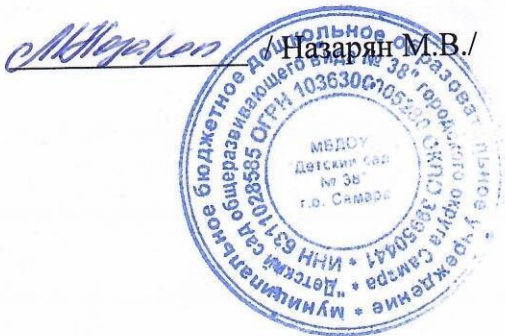 /Назарян М.В./
муниципальное бюджетное дошкольное образовательное учреждение *
"Детский сад общеразвивающего вида № 38" городского округа Самара *
ИНН 6311028585 ОГРН ОКПО 39950441 *
МБДОУ
"Детский сад
№ 38"
г.о. Самара